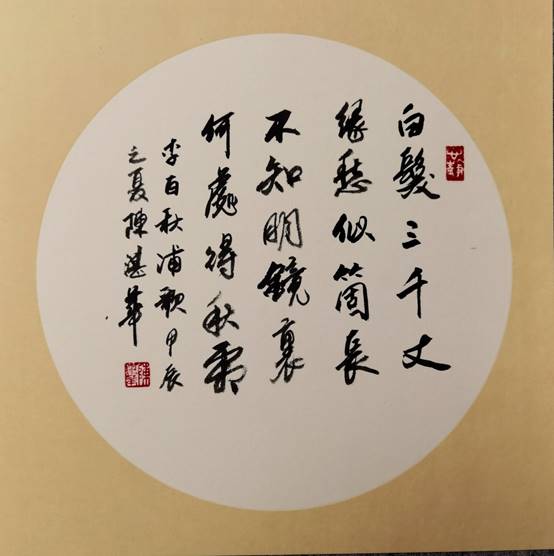 白髮三千丈
缘愁似箇長
不知明鏡裏
何處得秋霜
李白秋浦歌甲辰
之夏陳湛華